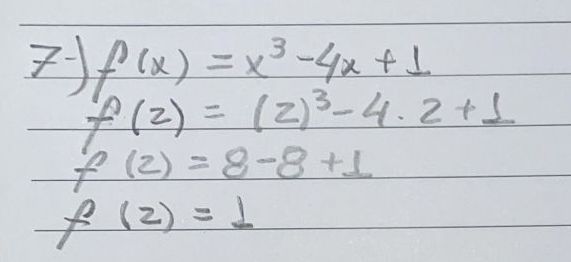 7-) f(x) = x³ - 4x + 1
f(2) = (2)³ - 4 . 2 + 1
f(2) = 8 - 8 + 1
f(2) = 1